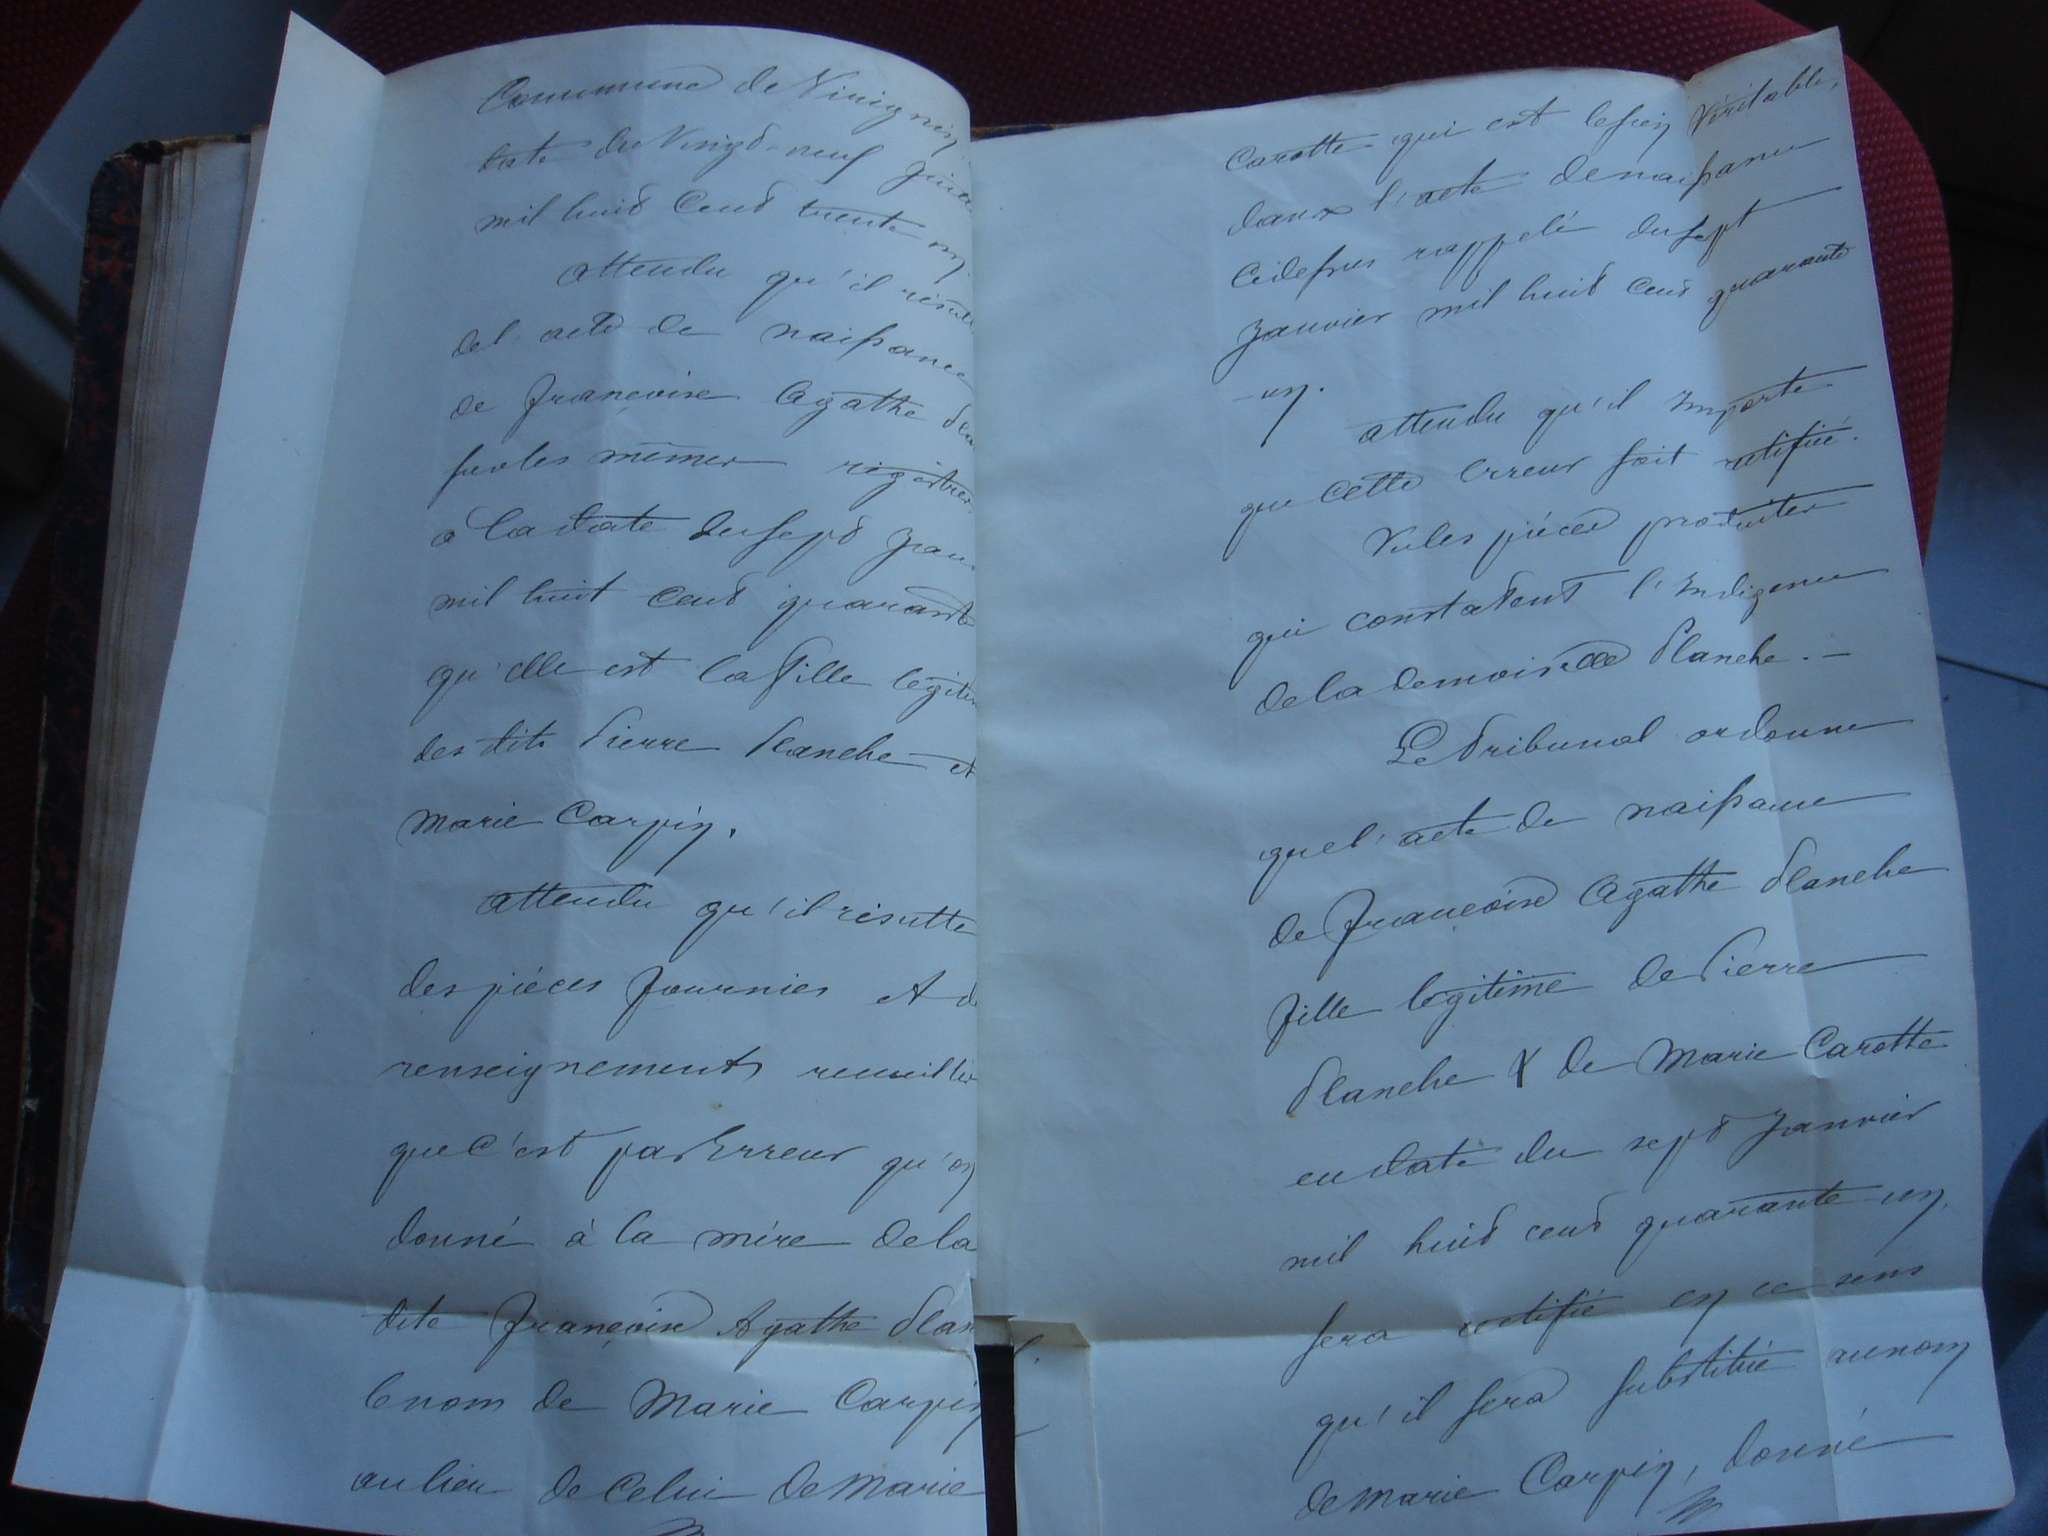 Commune de
date du Vingt-neuf
mil huit cent trente un.
attendu qu'il résult
de l'acte de naissance
de Françoise Agathe Pla
sur les mêmes registres
à la date du sept Jan
mil huit cent quarante
qu'elle est la fille légiti
des dits Pierre Planche et
Marie Carpin.
attendu qu'il résulte
des pièces fournies et d
renseignements recueillis
que c'est par Erreur qu'on
donné à la mère de la
dite Françoise Agathe Plan
le nom de Marie Carpin
au lieu de Celui de Marie
Carotte qui est le sien Véritable,
dans l'acte de naissance
cidessus rappelé du sept
Janvier mil huit cent quarante
-un.
attendu qu'il Importe
que cette Erreur soit rectifiée.
Vu les pièces produites
qui constatent l'Indigence
de la demoiselle Planche. -
Le Tribunal ordonne
que l'acte de naissance
de Françoise Agathe Planche
fille légitime de Pierre
Planche & de Marie Carotte
en date du sept Janvier
mil huit cent quarante-un.
sera rectifié en ce sens
qu'il sera substitué au nom
de Marie Carpin, donné